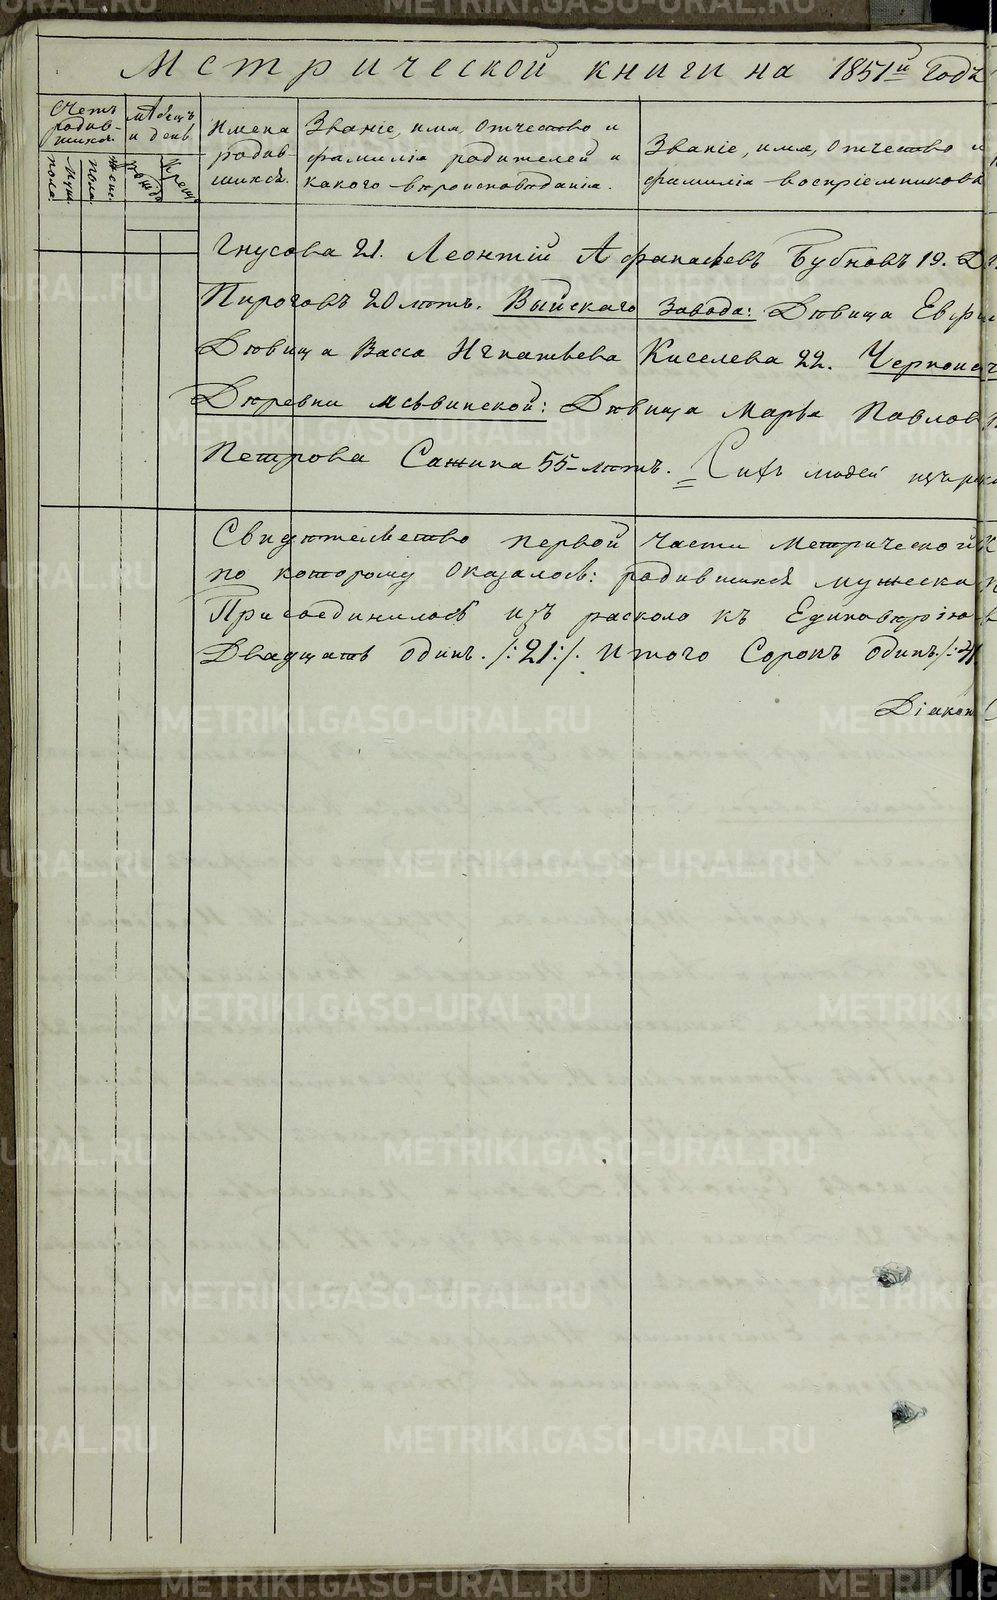 Метрической книги на 1851й Годъ
Счетъ родив-шихся.
мужеска пола.
женска пола.
мѣсяцъ и день
рожден
крещ
Имена родив-шихся.
Званіе, имя, отчество и фамилія родителей и какого вѣроисповѣданія.
Званіе, имя, отчество и фамилія воспріемниковъ
Гнусова 21. Леонтій Афанасьевъ Бубновъ 19.
Пироговъ 20 лѣтъ. Выйскаго Завода: Дѣвица
Дѣвица Васса Игнатьева Киселева 22.
Деревни Мѣвинской: Дѣвица Марѳа Павлов
Петрова Сажина 55-лѣтъ. Сихъ людей
Свидѣтельство первой части Метрической
по которому оказалось: родившихся мужеска
Присоединилось изъ раскола къ Единовѣрію
Двадцать одинъ. /:21:/. Итого Сорокъ одинъ./:41
Діаконъ
METRIKI.GASO-URAL.RU